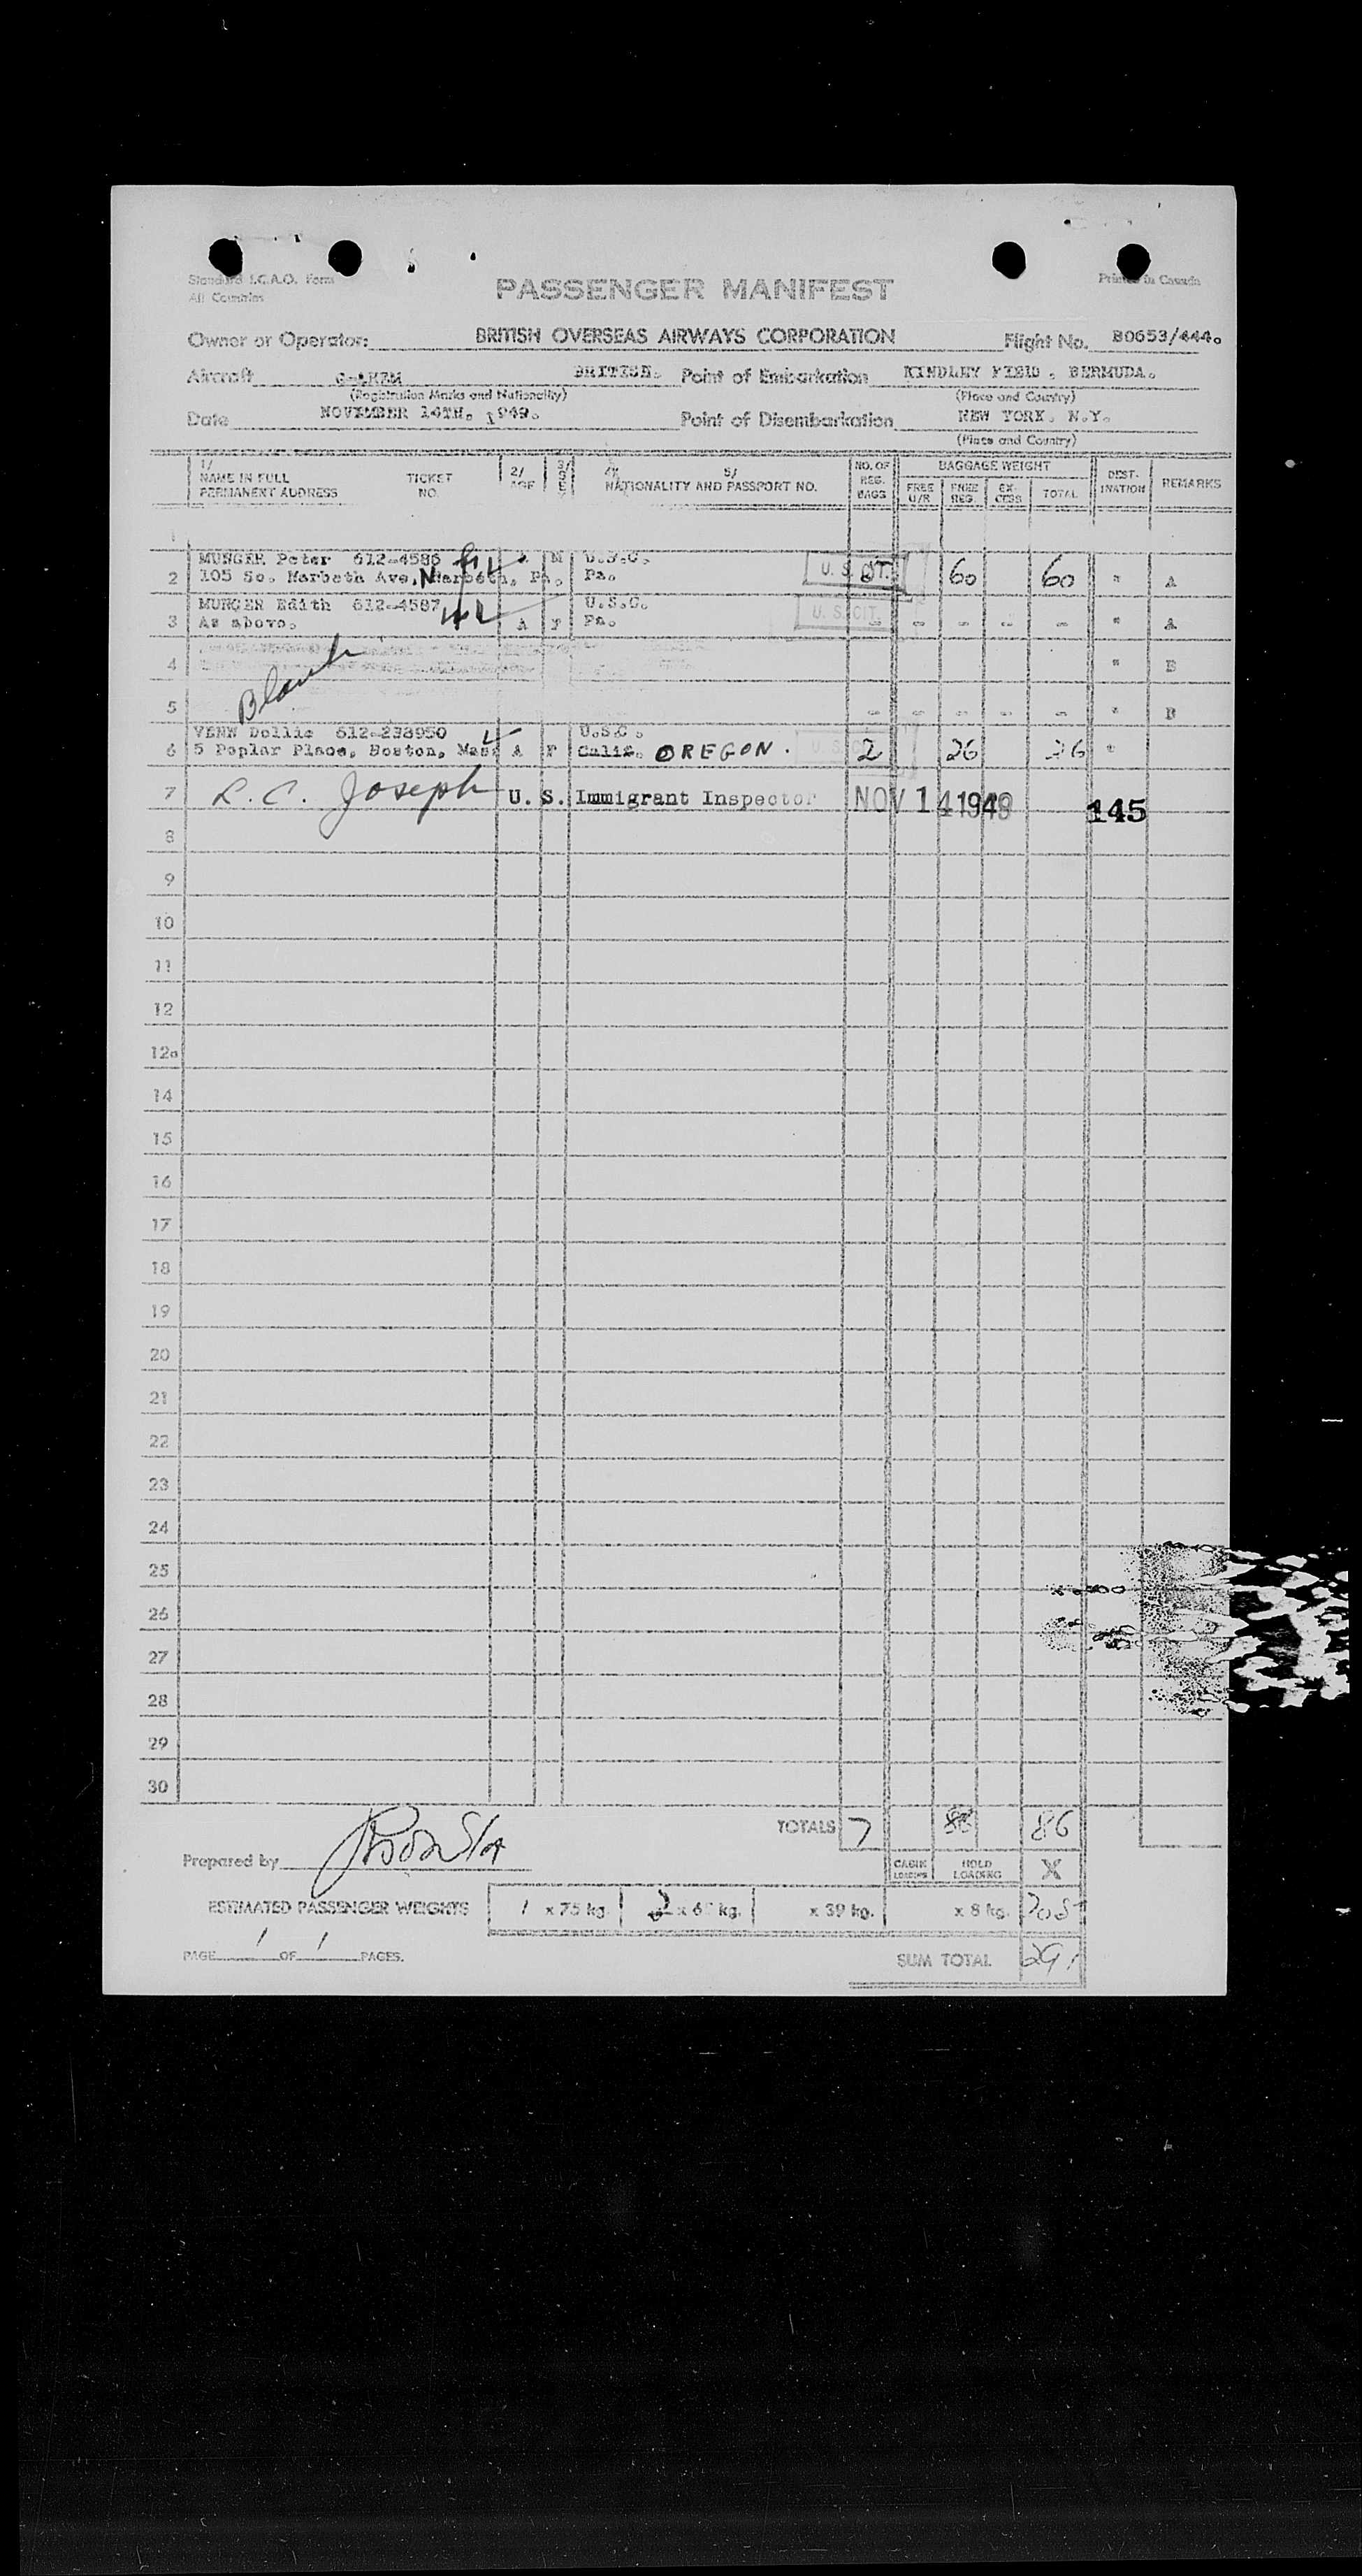 Standard I.C.A.O. Form
All Countries
PASSENGER MANIFEST
Printed in Canada
Owner or Operator: BRITISH OVERSEAS AIRWAYS CORPORATION Flight No. B0653/444.
Aircraft BRITISH. Point of Embarkation KINDLEY FIELD, BERMUDA.
(Registration Marks and Nationality) (Place and Country)
Date NOVEMBER 14TH. 1949. Point of Disembarkation NEW YORK. N.Y.
(Place and Country)
1/ NAME IN FULL PERMANENT ADDRESS TICKET NO. 2/ AGE 3/ 5/ NATIONALITY AND PASSPORT NO. NO. OF REG. BAGS BAGGAGE WEIGHT FREE U/R FREE REG. EX-CESS TOTAL DEST-INATION REMARKS
1
MUNGER Peter 612-4586 M U.S.C.
2 105 So. Narbeth Ave, Narbeth, Pa. Pa. U. S. CIT. 60 60 " A
MUNGER Edith 612-4587 U.S.C.
3 As above. A F Pa. U. S. CIT. - - - - - " A
4 " B
Blank
5 - - - - - " B
VENN Dollie 612-238950 U.S.C.
6 5 Poplar Place, Boston, Mass A F Calif. OREGON. U. S. CIT. 2 26 26 "
7 R. C. Joseph U. S. Immigrant Inspector NOV 14 1949 145
8
9
10
11
12
12a
14
15
16
17
18
19
20
21
22
23
24
25
26
27
28
29
30
TOTALS 7 86 86
Prepared by
CABIN LOADING HOLD LOADING X
ESTIMATED PASSENGER WEIGHTS 1 x 75 kg. 2 x kg. x 39 kg. x 8 kg. 205
PAGE 1 OF 1 PAGES.
SUM TOTAL 291